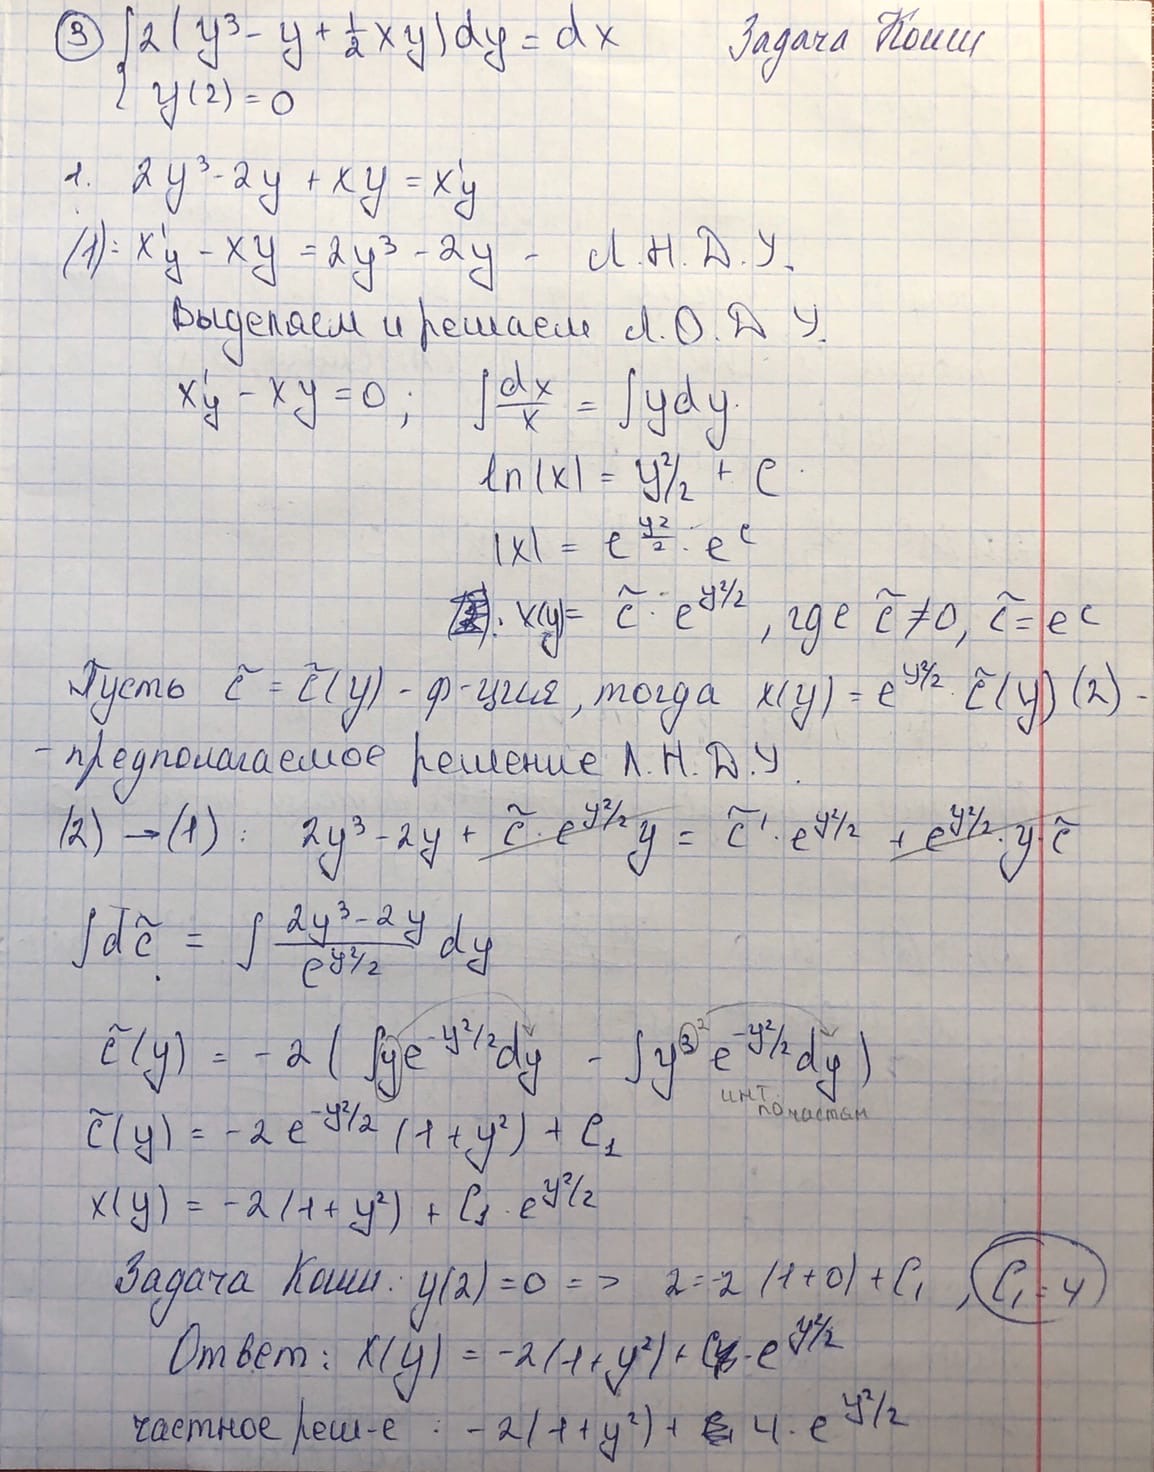 ③ { 2(y³ - y + ½xy)dy = dx Задача Коши
y(2) = 0
1. 2y³ - 2y + xy = x'y
(1): x'y - xy = 2y³ - 2y - Л.Н.Д.У.
Выделяем и решаем Л.О.Д.У.
x'y - xy = 0; ∫dx/x = ∫ydy.
ln|x| = y²/2 + C
|x| = e^(y²/2) · e^c
x(y) = c̃ · e^(y²/2), где c̃ ≠ 0, c̃ = e^c
Пусть c̃ = c̃(y) - ф-ция, тогда x(y) = e^(y²/2) · c̃(y) (2) -
- предполагаемое решение Л.Н.Д.У.
(2) → (1): 2y³ - 2y + c̃ · e^(y²/2) y = c̃' · e^(y²/2) + e^(y²/2) · y · c̃
∫dc̃ = ∫ (2y³ - 2y)/e^(y²/2) dy
c̃(y) = -2 ( ∫ye^(-y²/2)dy - ∫y³ ² e^(-y²/2)dy )
инт.
по частям
c̃(y) = -2e^(-y²/2) (1 + y²) + C₁
x(y) = -2(1 + y²) + C₁ · e^(y²/2)
Задача Коши: y(2) = 0 => 2 = -2 (1 + 0) + C₁, C₁ = 4
Ответ: x(y) = -2(1 + y²) + C · e^(y²/2)
частное реш-е : -2(1 + y²) + 4 · e^(y²/2)